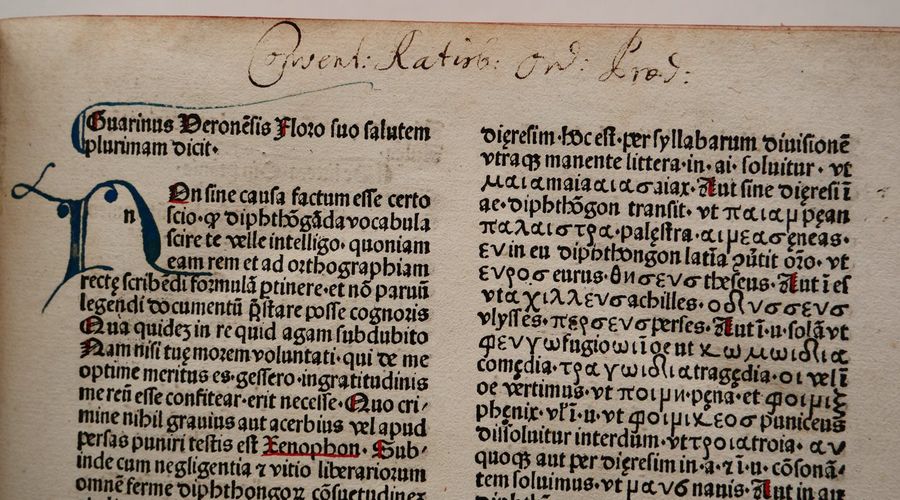 Convent: Ratisb: Ord: Præd:
Guarinus Veronēsis Floro suo salutem
plurimam dicit.
n
On sine causa factum esse certo
scio.qƺ diphthōgāda vocabula
scire te velle intelligo. quoniam
eam rem et ad orthographiam
rectę scribēdi formulā ꝑtinere.et nō paruū
legendi documentū p̄stare posse cognoris
Qua quidez in re quid agam subdubito
Nam nisi tuę morem voluntati. qui de me
optime meritus es.gessero.ingratitudinis
me reū esse confitear.erit necesse. Quo cri/
mine nihil grauius aut acerbius vel apud
persas puniri testis est Xenophon. Sub-
inde cum negligentia ⁊ vitio librariorum
omnē ferme diphthongoꝝ cōsuetudinez
dięresim.hoc est.per syllabarum diuisionē
vtraqꝫ manente littera.in.ai.soluitur. vt
μαια maia αιασ aiax. Aut sine dięresi ī
ae.diphthōgon transit. vt παιαμ pęan
παλαιστρα.palęstra.αιμεασ ęneas.
εν in eu diphthongon latīa ꝯūtit oīo. vt
ευροσ eurus.θησευσ theseus. Aut ī es
vt αχιλλευσ achilles. οδυσσευσ
vlysses. περσευσ perses. Aut ī.u.solā vt
φευγω fugio ωι ī oe ut κωμωιδια
comędia.τραγωιδια tragędia.οι vel ī
oe vertimus.vt ποιμη.pęna.et φοιμιξ
phęnix.vl ī.u.vt φοιμικεοσ puniceus
dissoluitur interdum.vt τροια troia. αυ
quoqꝫ aut per dięresim in.a.⁊ ī.u.cōsonā-
tem soluimus.vt μαυσ nauis. Aut in au